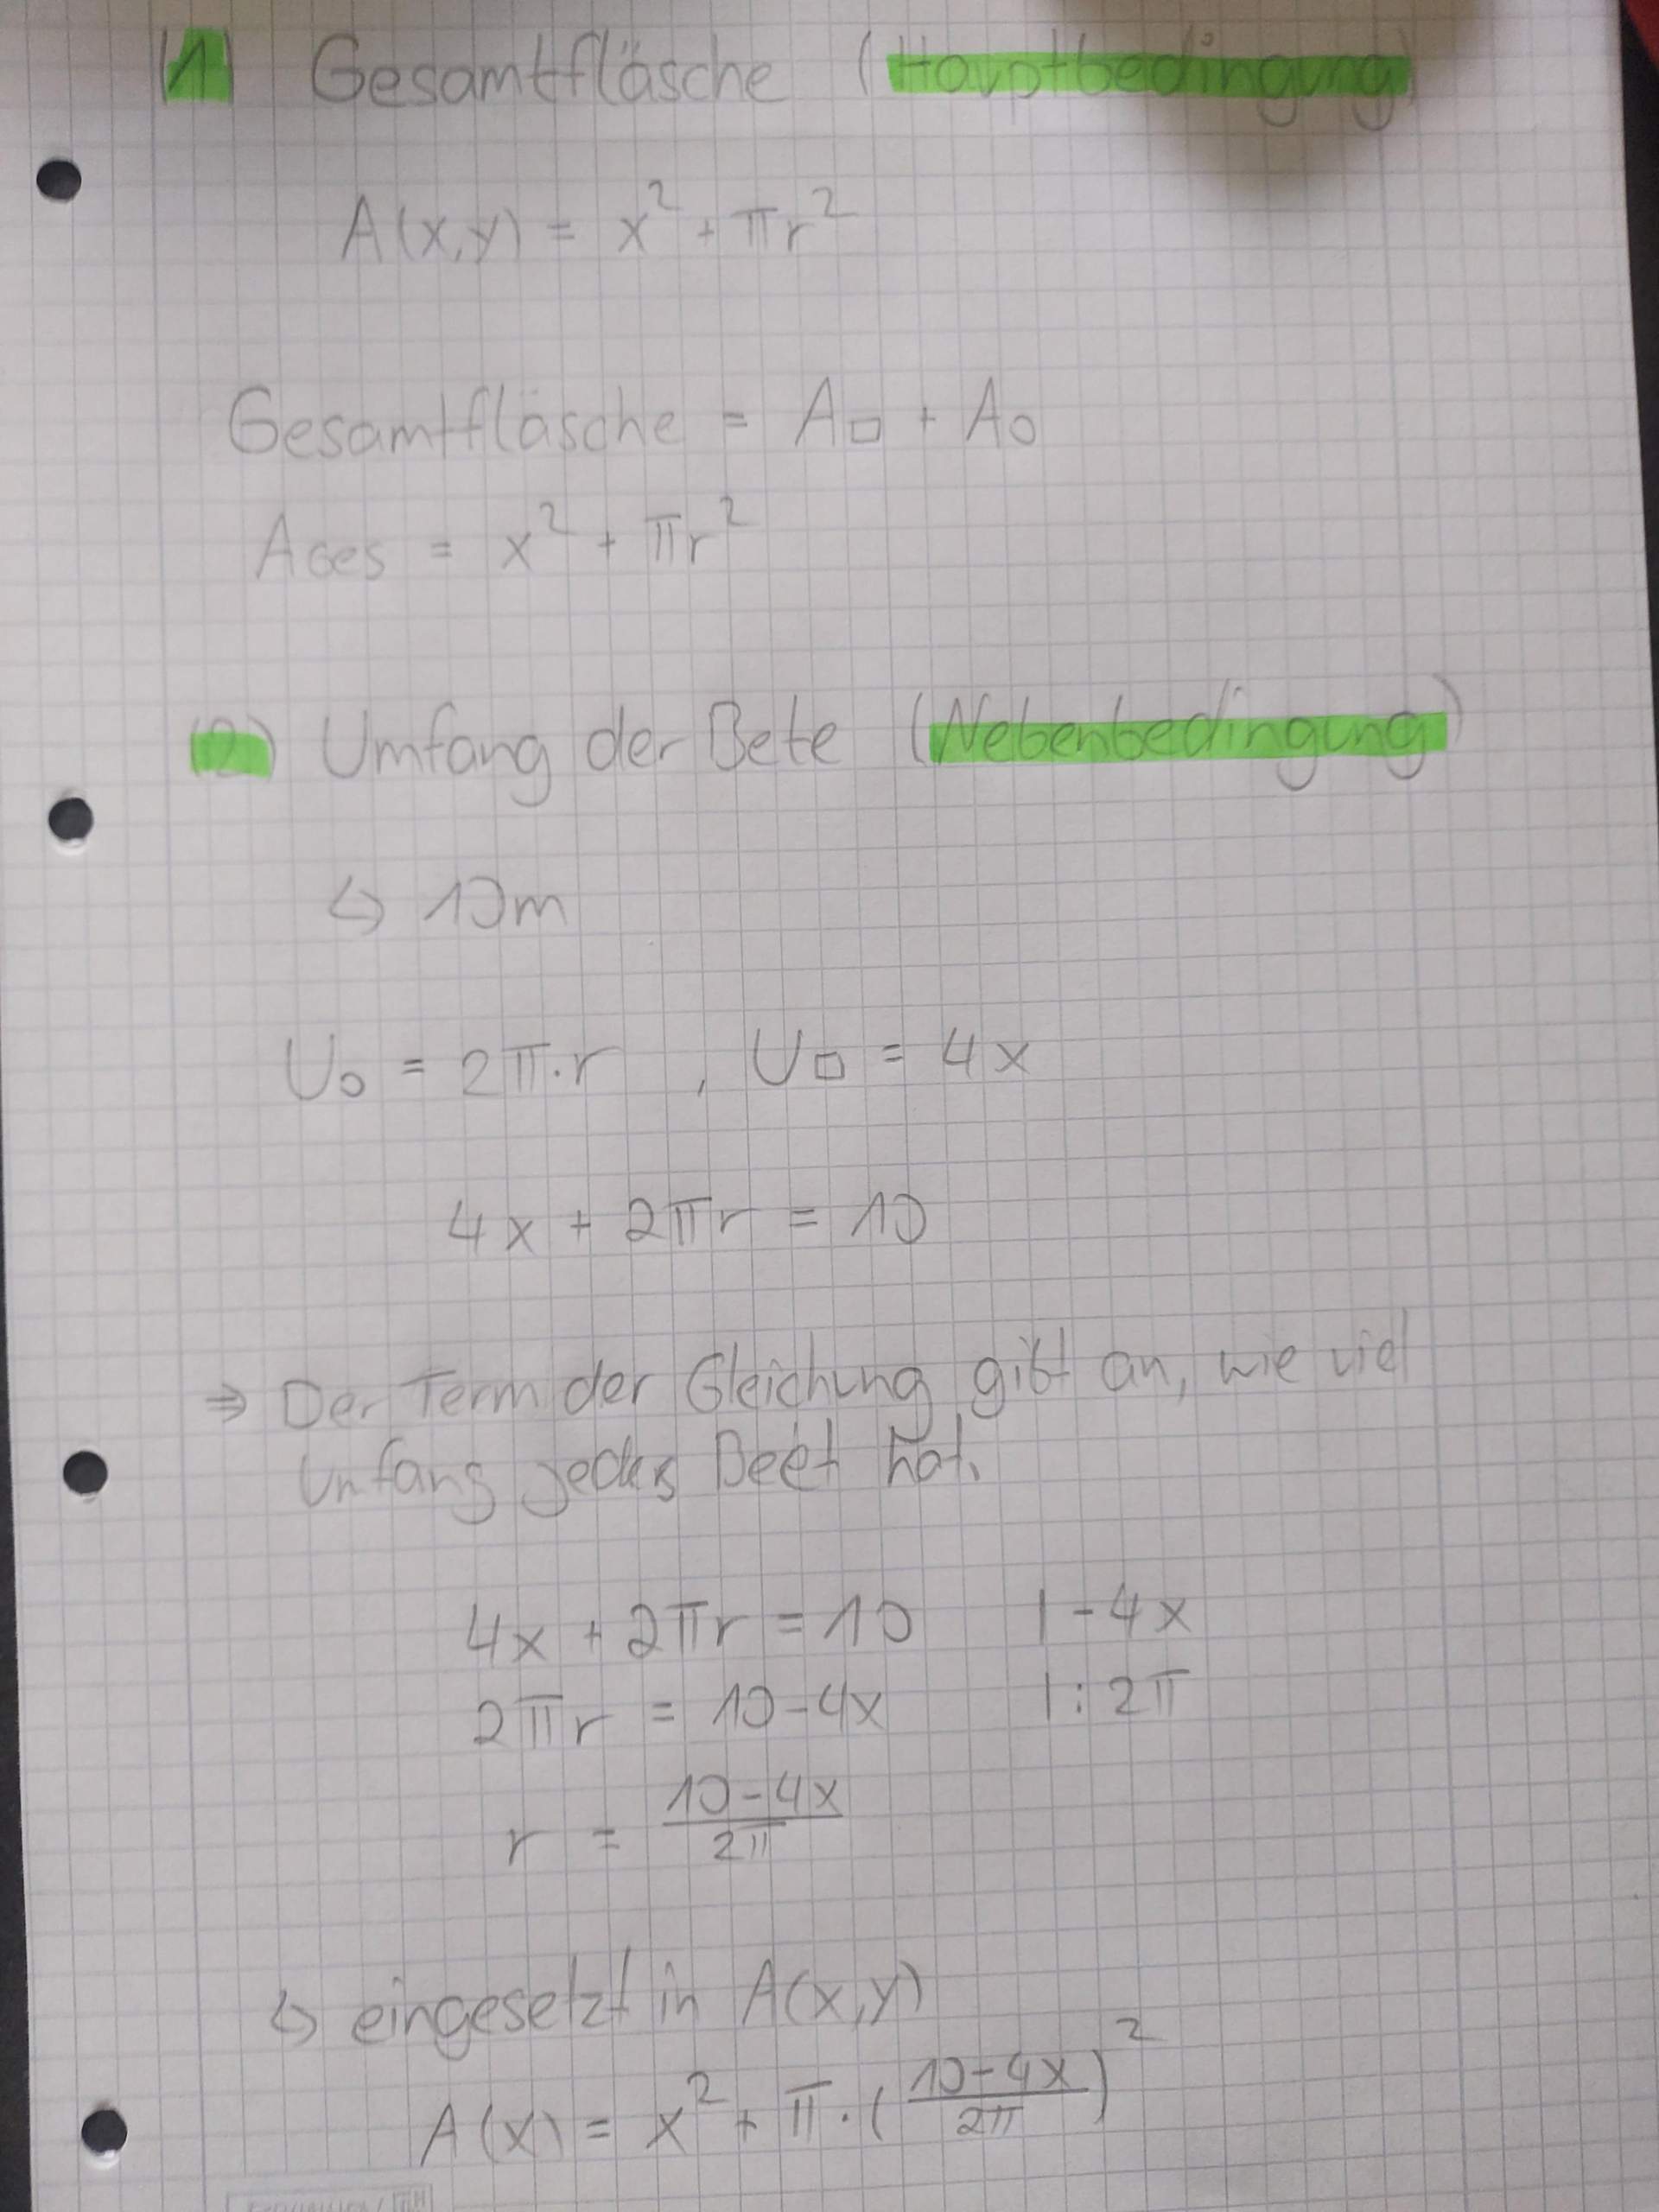 (1) Gesamtfläsche (Hauptbedingung)
A(x,y) = x² + πr²
Gesamtfläsche = A□ + A○
AGes = x² + πr²
(2) Umfang der Bete (Nebenbedingung)
↳ 10m
U○ = 2π·r , U□ = 4x
4x + 2πr = 10
⇒ Der Term der Gleichung gibt an, wie viel
Umfang jedes Beet hat.
4x + 2πr = 10 | - 4x
2πr = 10 - 4x | : 2π
r = (10-4x)/(2π)
↳ eingesetzt in A(x,y)
A(x) = x² + π · ((10-4x)/(2π))²